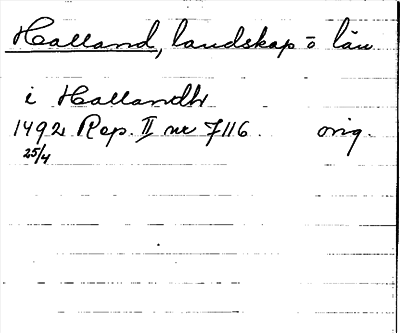 Halland, landskap o län
i Hallandh
1492 Rep. II nr 7116. orig.
25/4